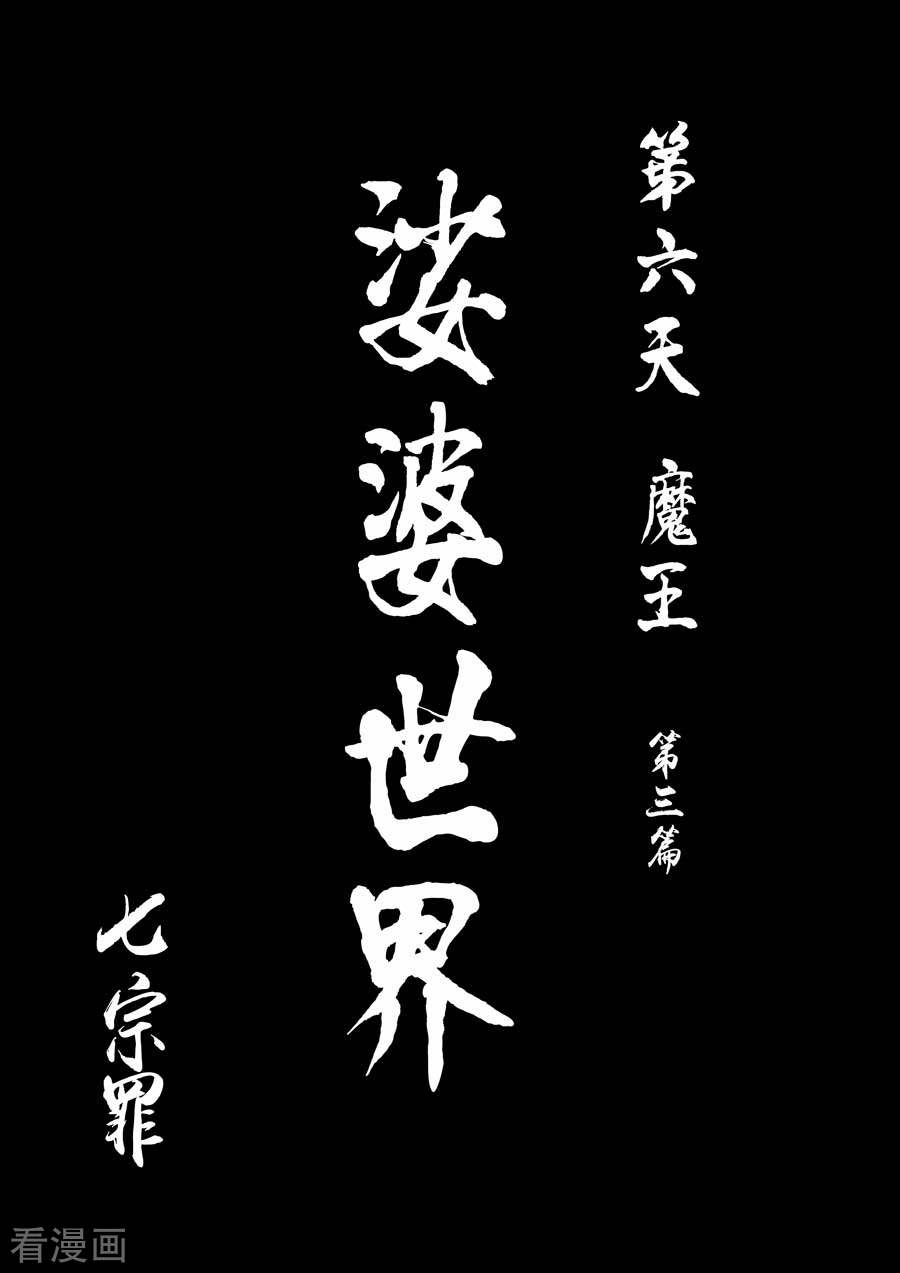 第六天 魔王 第三篇
娑婆世界
七宗罪
看漫画